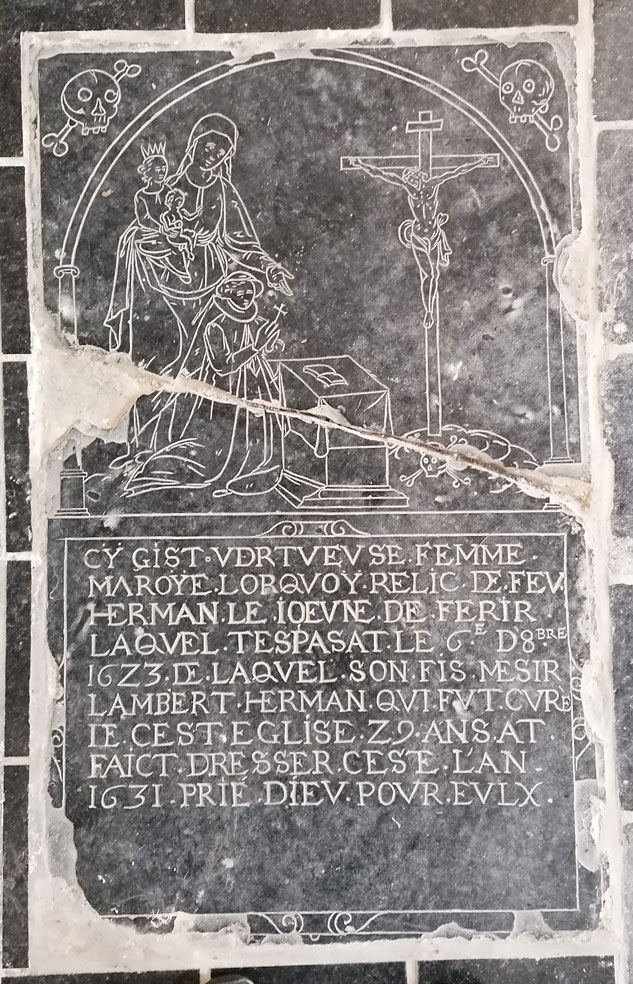 CY GIST · VDRTVEVSE · FEMME ·
MAROŸE · LORQVOY · RELIC · DE · FEV ·
HERMAN · LE · IOEVNE · DE · FERIR
LAQVEL · TESPASAT · LE 6E D'8BRE
1623 · DE · LAQVEL · SON · FIS · MESIR
LAMBERT · HERMAN · QVI · FVT · CVRE
DE · CEST · EGLISE · 29 · ANS · AT ·
FAICT · DRESSER · CESTE · L'AN ·
1631 · PRIÉ · DIEV · POVR · EVLX ·